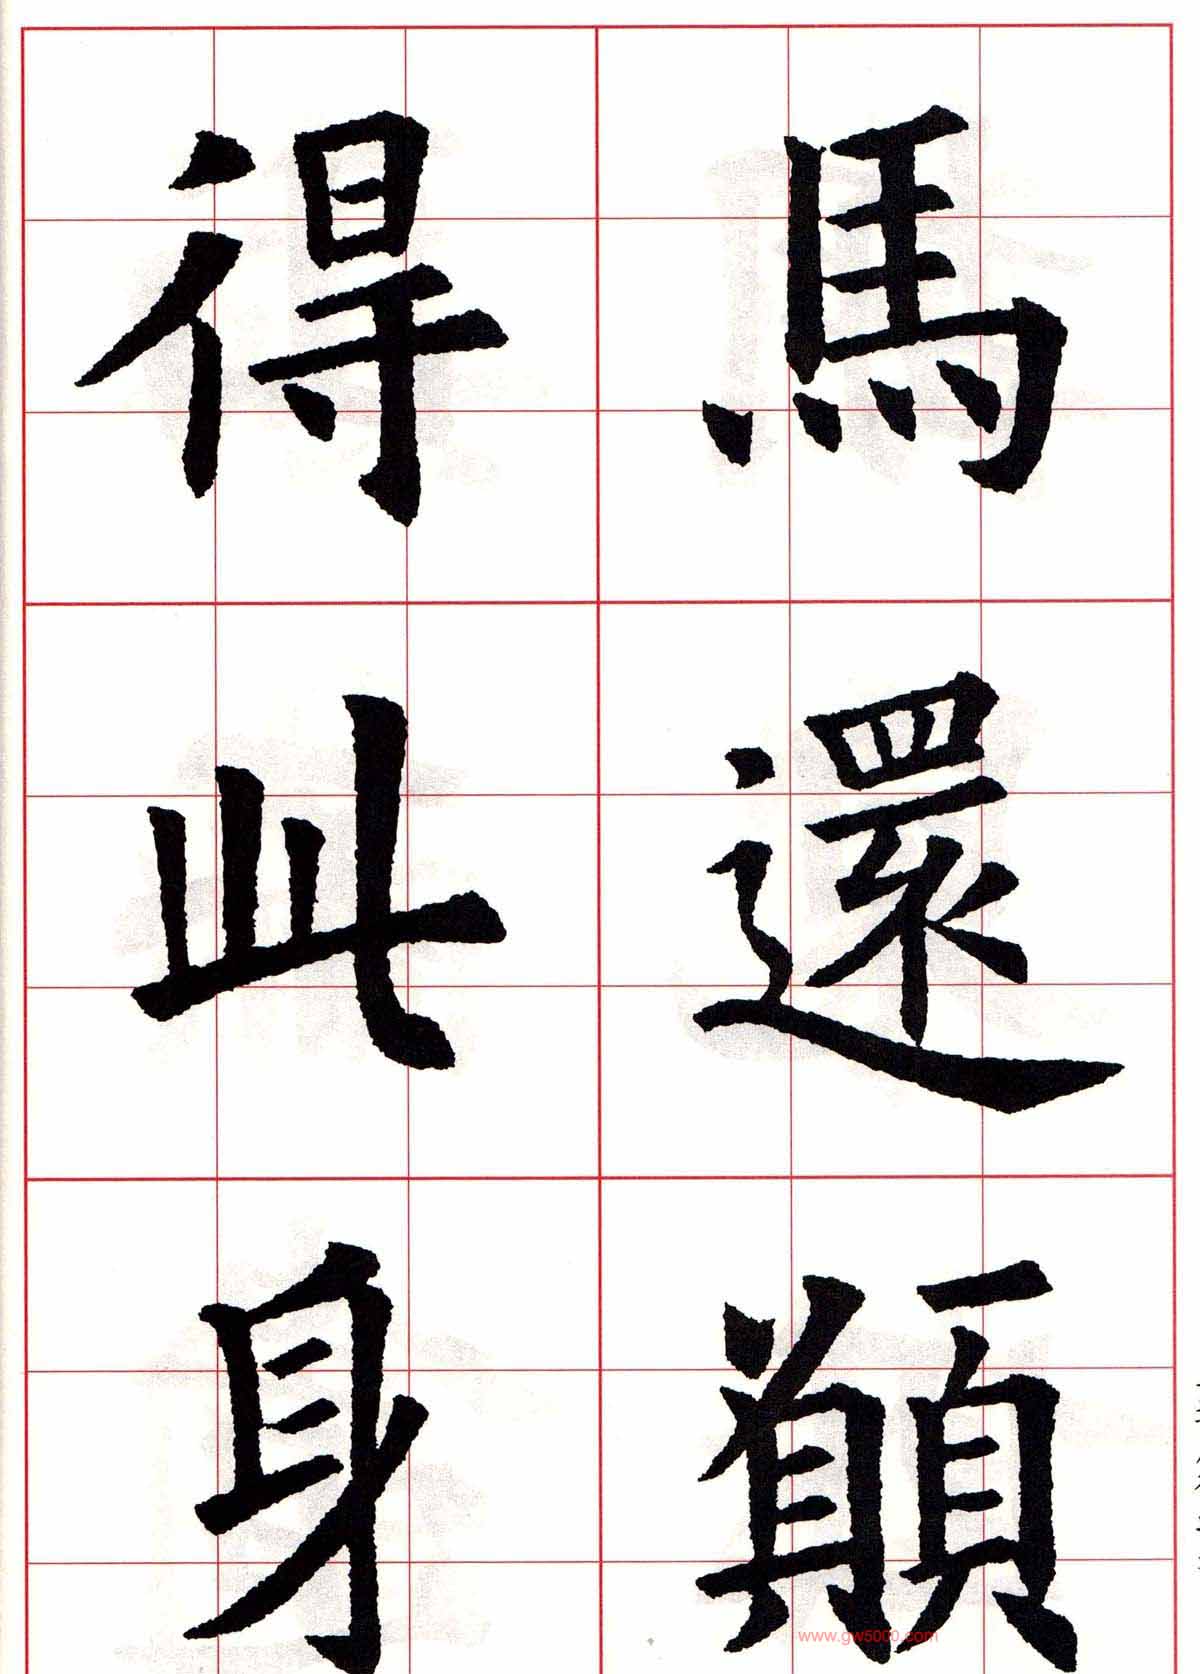 馬還願
得此身
www.gw5000.com